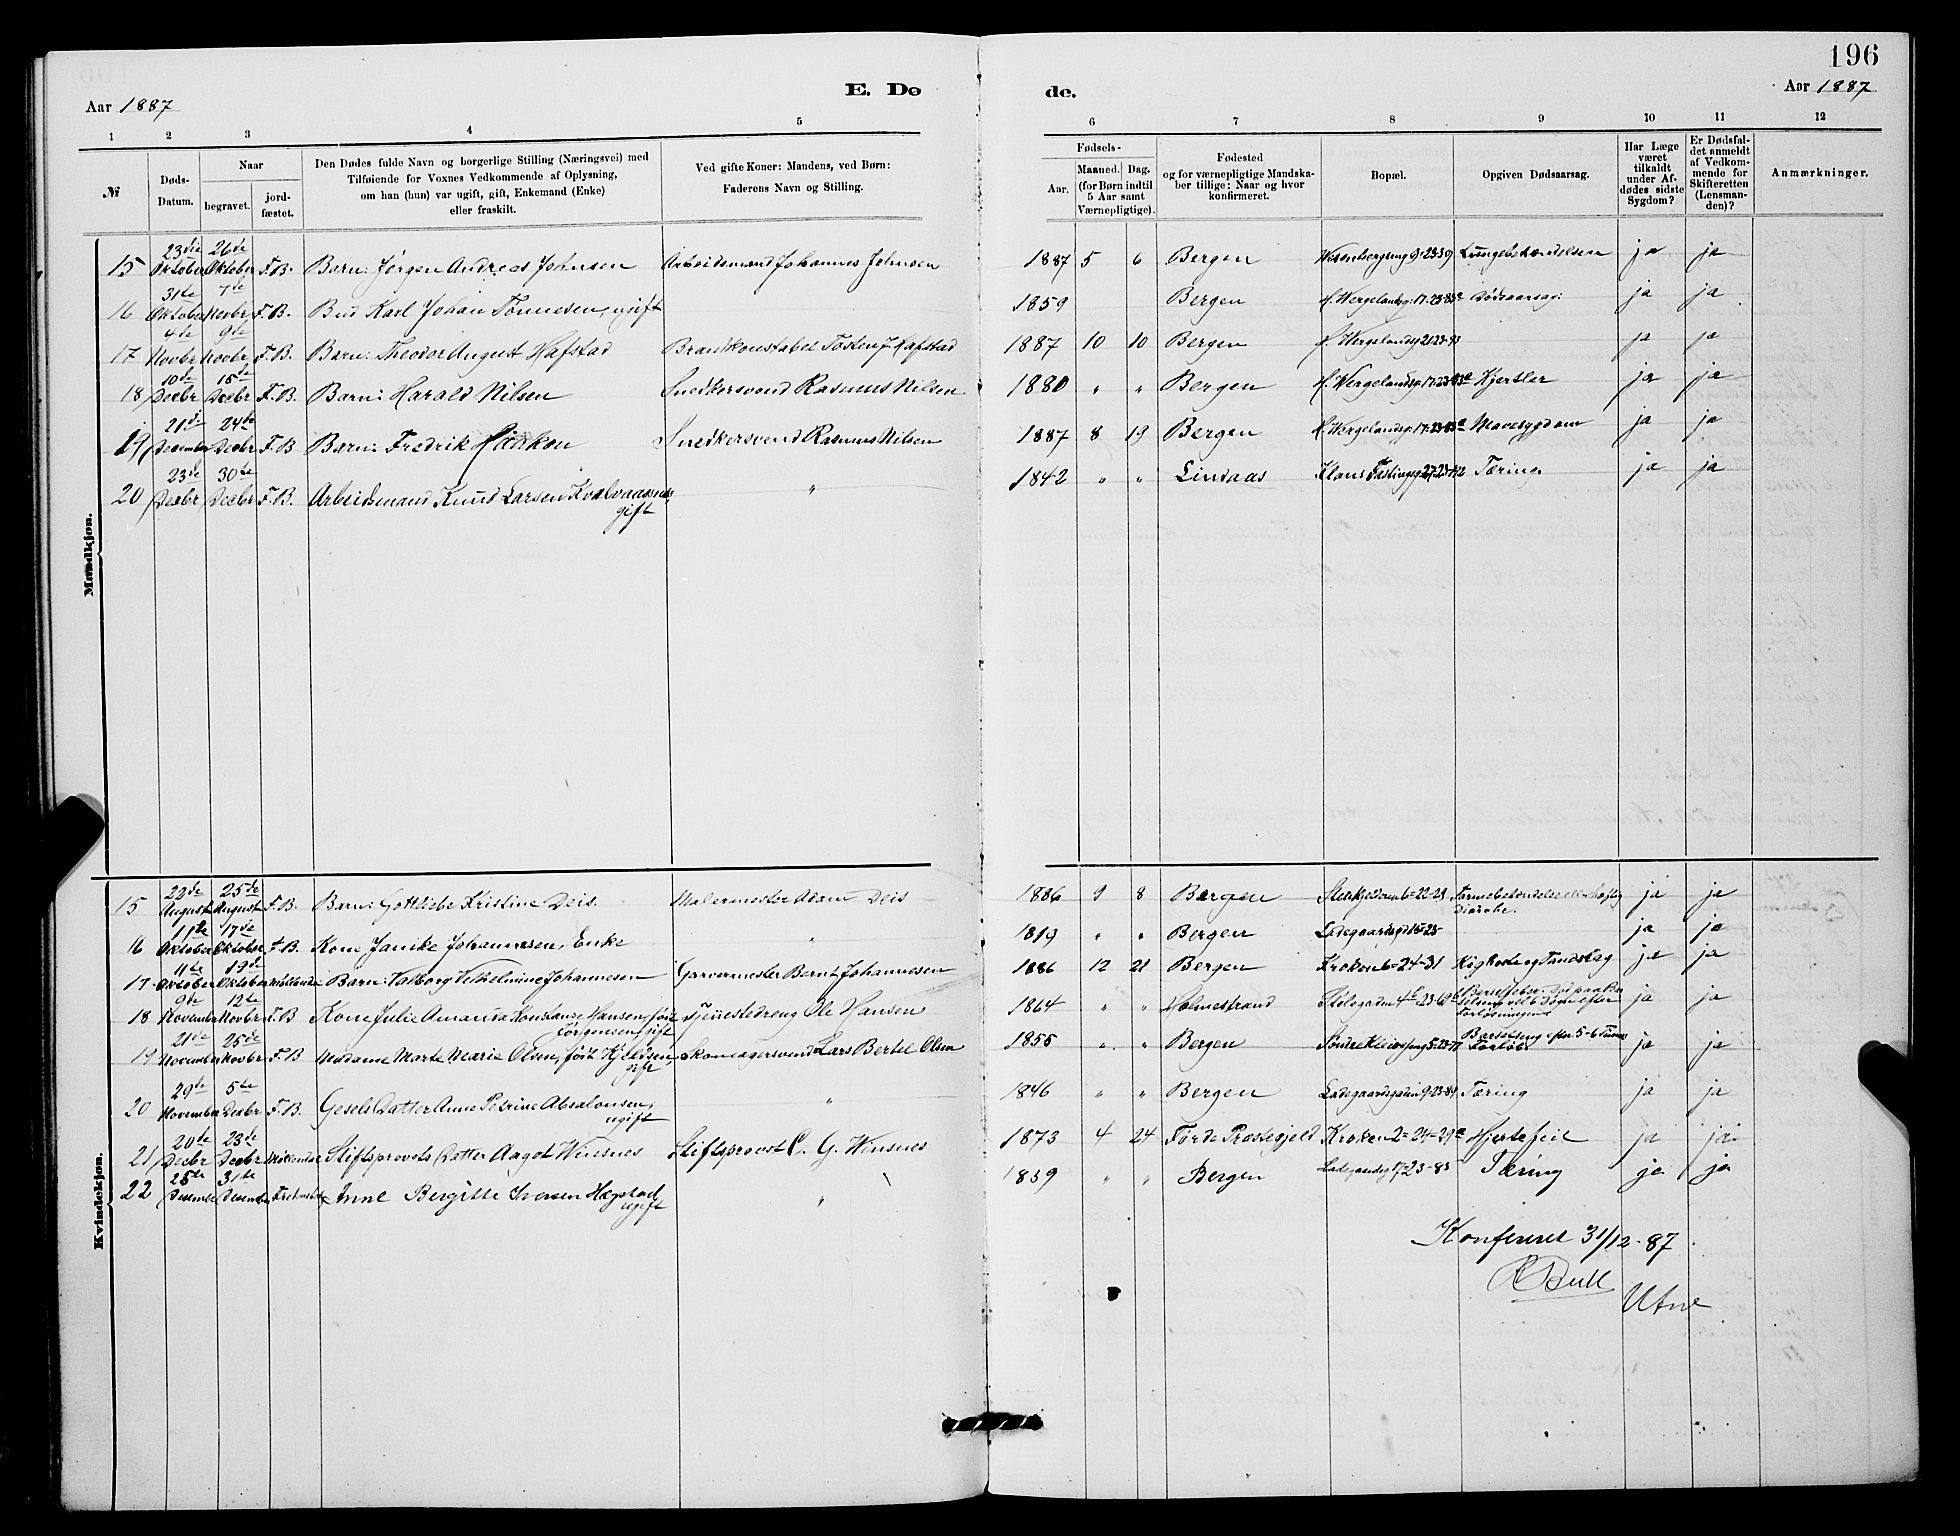 196
Aar 1887
E. Dø
de.
Aar 1887
1 2 3 4 5 6 7 8 9 10 11 12
№
Døds-Datum.
Naar
begravet.
jord-fæstet.
Den Dødes fulde Navn og borgerlige Stilling (Næringsvei) med
Tilføiende for Voxnes Vedkommende af Oplysning,
om han (hun) var ugift, gift, Enkemand (Enke)
eller fraskilt.
Ved gifte Koner: Mandens, ved Børn:
Faderens Navn og Stilling.
Fødsels-
Aar.
Maaned.
Dag.
(for Børn indtil
5 Aar samt
Værnepligtige).
Fødested
og for værnepligtige Mandska-
ber tillige: Naar og hvor
konfirmeret.
Bopæl.
Opgiven Dødsaarsag.
Har Læge
været
tilkaldt
under Af-
dødes sidste
Sygdom?
Er Dødsfal-
det anmeldt
af Vedkom-
mende for
Skifteretten
(Lensman-
den)?
Anmærkninger.
Mandkjøn.
15 23de Oktober 26de Oktober F.B. Barn: Jørgen Andreas Johnsen Arbeidsmand Johannes Johnsen 1887 5 6 Bergen 9-23-39 Lungebetændelsen ja ja
16 31te Oktober 7de Novbr F.B. Bud Karl Johan Tønnesen, ugift 1859 Bergen H. Wergelandsg: 17-23- Dødsaarsag: ja ja
17 4te Novbr 9de Novbr F.B. Barn: Theodor August Hafstad Brandkonstabel Tosten J Hafstad 1887 10 10 Bergen H. Wergelandsg 21-23-93 ja ja
18 10de Decbr 15de Decbr F.B. Barn: Harald Nilsen Snedkersvend Rasmus Nilsen 1880 " " Bergen H. Wergelandsg. 17-23- Hjertler ja ja
19 21de December 24de Decbr F.B Barn: Fredrik Haakon Snedkersvend Rasmus Nilsen 1887 8 19 Bergen H. Wergelandsg. 17-23- Mavesygdom ja ja
20 23de Decbr 30te Decbr F.B. Arbeidsmand Knud Larsen Kvalvaagnes, " 1842 " " Lindaas Klaus Fastingsg 27-23- Tæring ja ja
gift
Kvindekjøn.
15 22de August 25de August F.B. Barn: Gottliebe Kristine Deis. Malermester Adam Deis 1886 9 8 Bergen 6-22-23 Tarmebetændelse ja ja
Diarohe.
16 11te Oktober 17de Oktober F.B. Kone Janike Johannesen, Enke " 1819 " " Bergen Ladegaardsgd 15-23- ja ja
17 11te Oktober 19de Oktober Barn: Valborg Vilhelmine Johannesen Garvermester Bernt Johannesen 1886 12 21 Bergen Kroken 6-24-31 Kighoste og Tandslag ja ja
18 9de November 12te Novbr F.B Kone Julie Amanda Konstanse Hansen, født Tjenestedreng Ole Hansen 1864 " " Holmestrand Skolegaden ja ja
Jørgensen, gift
19 21de November 25de Novbr F.B Madame Marte Marie Olsen, født Kjeldsen, Skomagersvend Lars Bertel Olsen 1855 " " Bergen Barselseng efter 5-6 ja ja
gift
20 29de November 5te Decbr F.B. Gesels Datter Anne Petrine Absalonsen, " 1846 " " Bergen Ladegaardsgaden 9-23-89 Tæring ja ja
ugift
21 20de Decbr 23de Decbr Stiftsprovsts Datter Aagot Winsnes Stiftsprovst C. G. Winsnes 1873 4 24 Førde Præstegjeld Kroken 2-24-29 Hjertefeil ja ja
22 25te Desember 31te Desember Anne Bergitte Iversen Hægstad " 1839 " " Bergen Ladegaardsg 17-23-83 Tæring ja ja
ugift
Konfereret 31/12-87
Bull
Utne